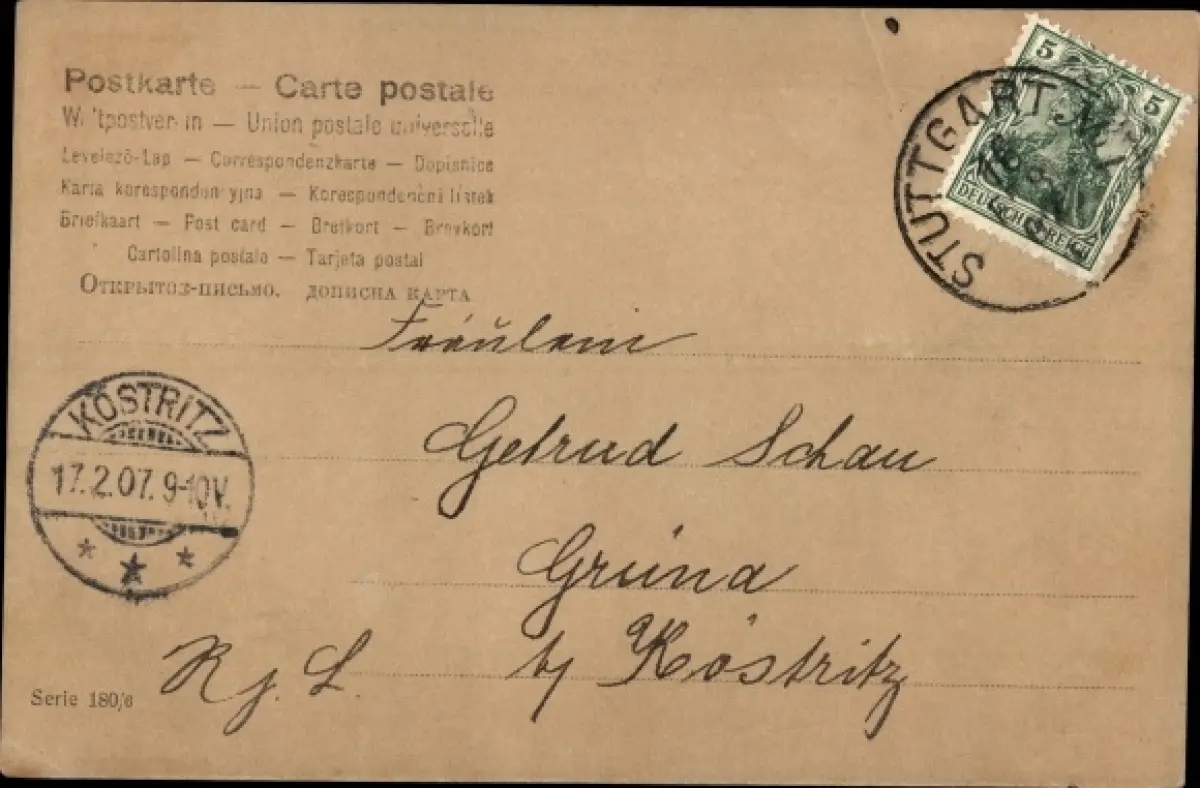 Postkarte — Carte postale
Weltpostverein — Union postale universelle
Levelező-Lap — Correspondenzkarte — Dopisnice
Karta korespondencyjna — Korespondenční lístek
Briefkaart — Post card — Brefkort — Brevkort
Cartolina postale — Tarjeta postal
Открытоэ-письмо. дописна карта
5 5
STUTTGART
16
DEUTSCHES REICH
Fräulein
KÖSTRITZ
17.2.07. 9-10V.
Getrud Schau
Grüna
b/ Köstritz
R. j. L.
Serie 180/6